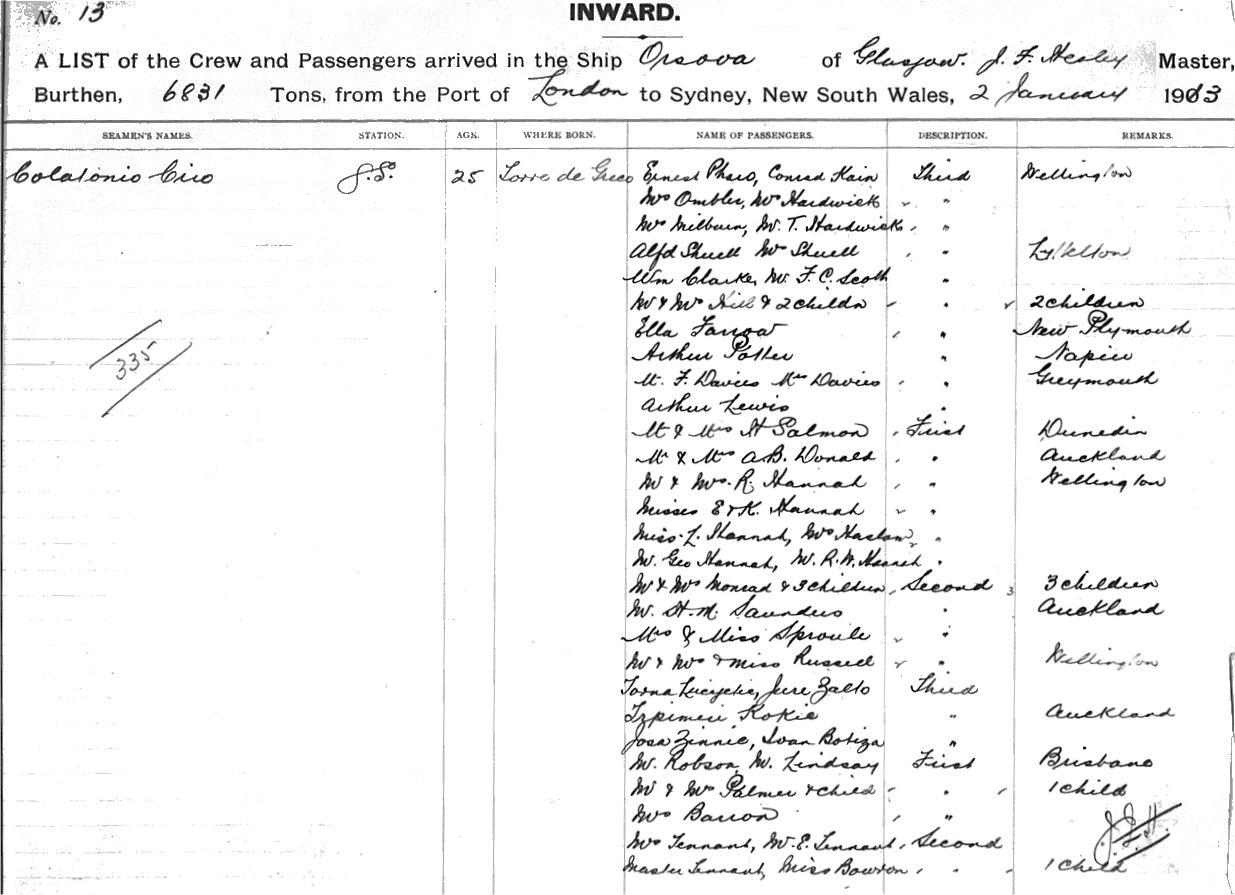 No. 13
INWARD.
A LIST of the Crew and Passengers arrived in the Ship Orsova of Glasgow. J. F. Healey Master,
Burthen, 6831 Tons, from the Port of London to Sydney, New South Wales, 2 January 1913
SEAMEN'S NAMES. STATION. AGE. WHERE BORN. NAME OF PASSENGERS. DESCRIPTION. REMARKS.
Colatonio Ciro 25 Torre de Greco Ernest Pharo, Conrad Kain Third Wellington
Mrs Ombler, Mrs Hardwick "
Mrs Milburn, Mr. T. Hardwick "
Alfd Shuell Mrs Shuell " Lyttelton
Wm Clarke, Mr. F. C. Scott "
Mr & Mrs Hill & 2 childn " 2 children
Ella Farrow " New Plymouth
335
Arthur Potter " Napier
Mr. F. Davies Mrs Davies " Greymouth
Arthur Lewis "
Mr & Mrs H Salmon First Dunedin
Mr & Mrs A.B. Donald " Auckland
Mr & Mrs. R. Hannah " Wellington
Misses E & K. Hannah "
Miss L. Hannah, Mrs Haslam "
Mr. Geo Hannah, Mr. R. W. Hannah "
Mr & Mrs Monrad & 3 children Second 3 3 children
Mr. H. M. Saunders " Auckland
Mrs & Miss Sproule "
Mr & Mrs & Miss Russell " Wellington
Jure Zalto Third
Kokic " Auckland
Josa Zinnic, Ivan Botiza "
Mr. Robson, Mr. Lindsay First Brisbane
Mr & Mrs Palmer & child " 1 child
Mrs Barron "
Mrs Tennant, Mr. E. Tennant Second
J.F.H.
Master Tennant, Miss Bowron " 1 Child